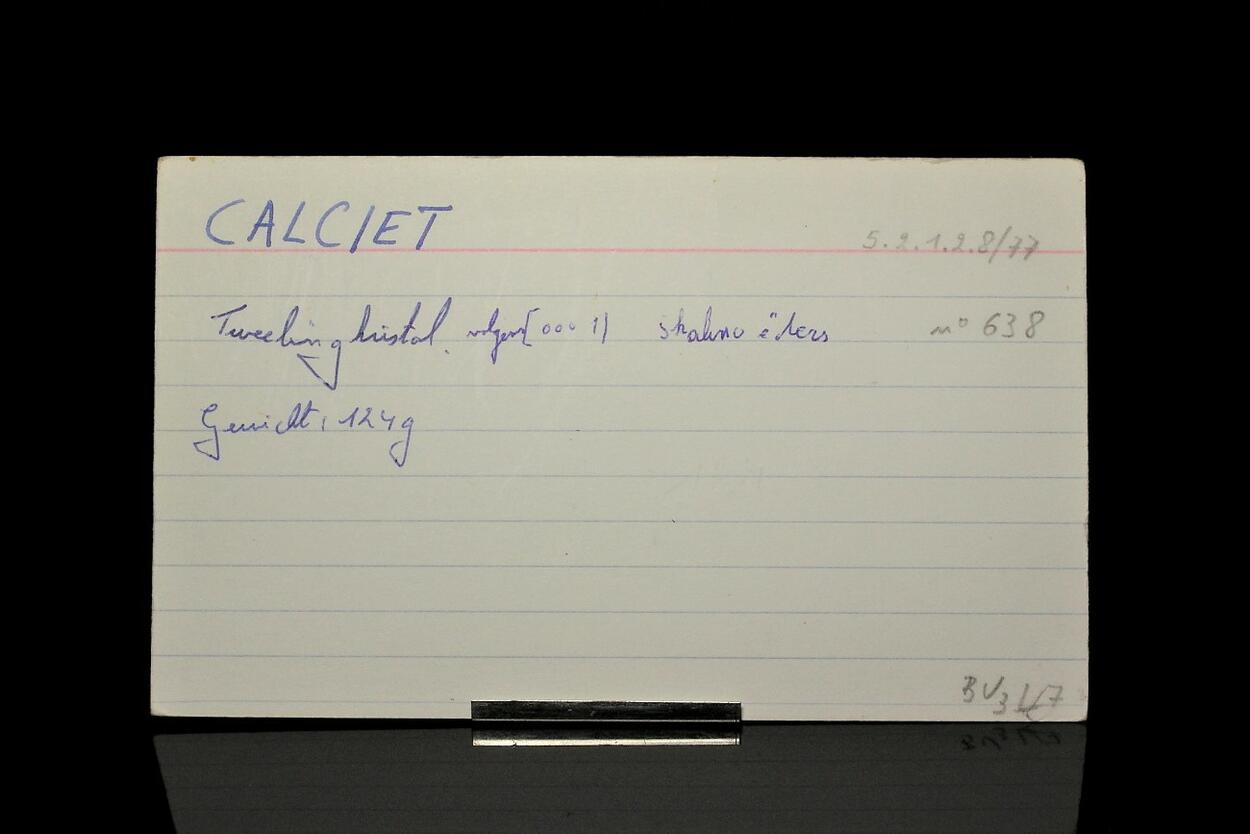 CALCIET
5.2.1.2.8/77
Tweeling kristal. volgens [0001] skalenoëders n° 638
Gewicht: 124g